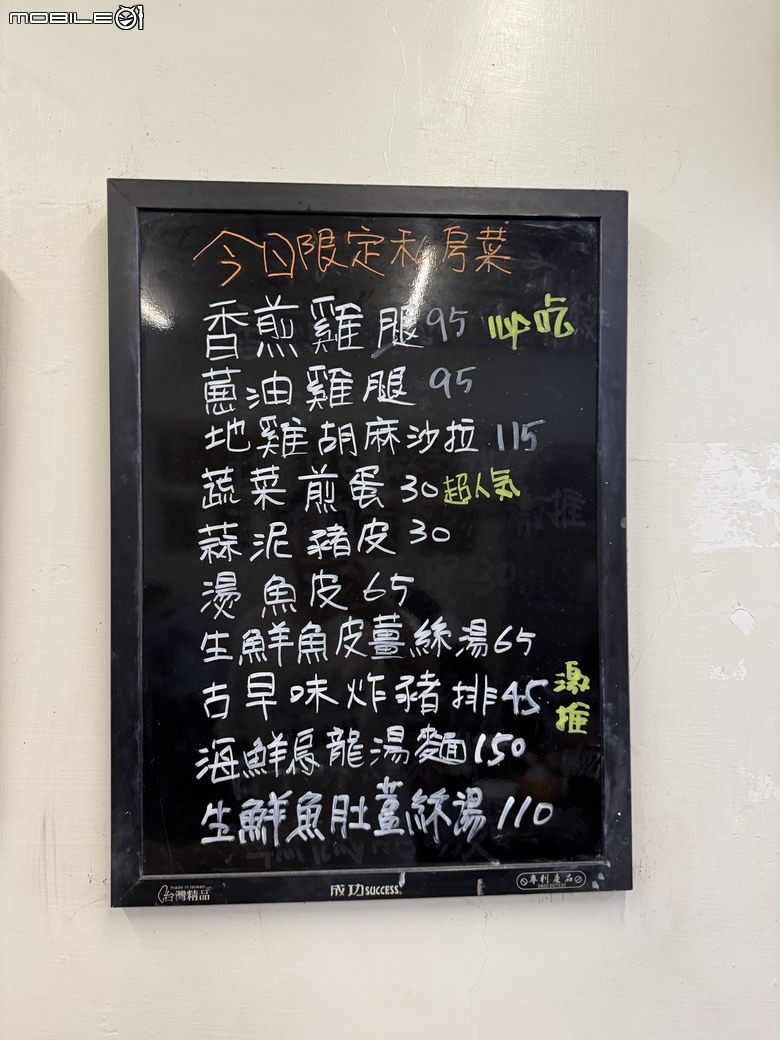 MOBILE01
今日限定私房菜
香煎雞腿 95 必吃
蔥油雞腿 95
地雞胡麻沙拉 115
蔬菜煎蛋 30 超人気
蒜泥豬皮 30
燙魚皮 65
生鮮魚皮薑絲湯 65
古早味炸豬排 45 激推
海鮮烏龍湯麵 150
生鮮魚肚薑絲湯 110
made in taiwan
台灣精品
成功 SUCCESS
專利產品